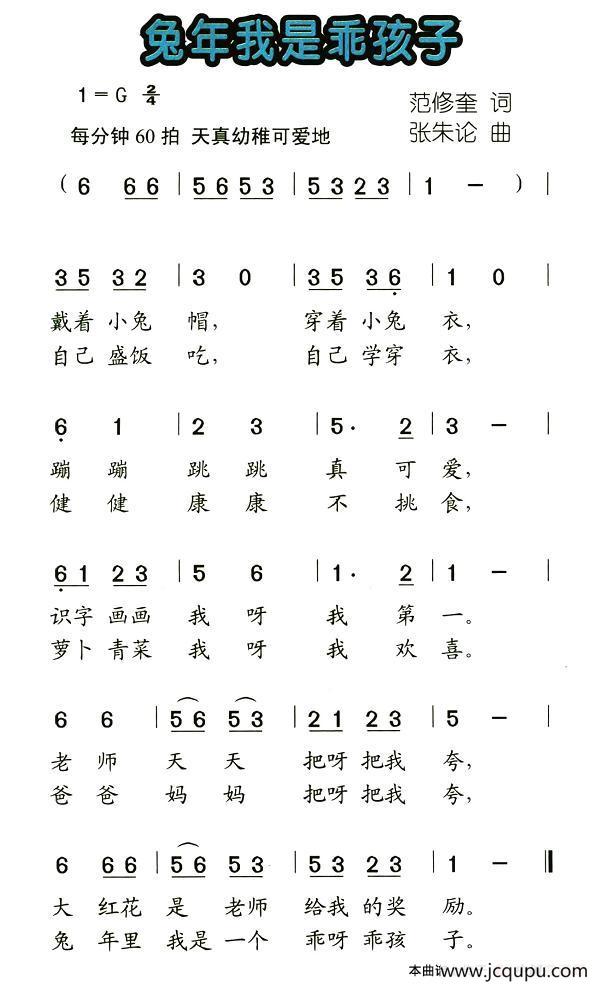 兔年我是乖孩子
1=G 2/4
范修奎 词
每分钟60拍 天真幼稚可爱地
张朱论 曲
( 6 6 6 | 5 6 5 3 | 5 3 2 3 | 1 - ) |
3 5 3 2 | 3 0 | 3 5 3 6̣ | 1 0 |
戴着 小兔 帽, 穿着 小兔 衣,
自己 盛饭 吃, 自己 学穿 衣,
6̣ 1 | 2 3 | 5· 2 | 3 - |
蹦 蹦 跳 跳 真 可 爱,
健 健 康 康 不 挑 食,
6̣ 1 2 3 | 5 6 | 1· 2 | 1 - |
识字 画画 我 呀 我 第 一。
萝卜 青菜 我 呀 我 欢 喜。
6 6 | 5 6 5 3 | 2 1 2 3 | 5 - |
老 师 天 天 把呀 把我 夸,
爸 爸 妈 妈 把呀 把我 夸,
6 6 6 | 5 6 5 3 | 5 3 2 3 | 1 - ‖
大 红花 是 老师 给我 的奖 励。
兔 年里 我是 一个 乖呀 乖孩 子。
本曲 www.jcqupu.com